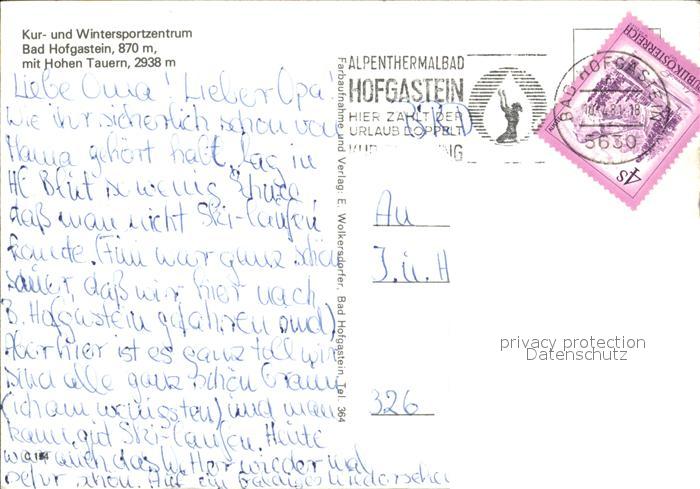 Kur- und Wintersportzentrum
Bad Hofgastein, 870 m,
mit Hohen Tauern, 2938 m
Liebe Oma! Lieber Opa!
Wie ihr sicherlich schon von
Mama gehört habt, lag in
so wenig Schnee
daß man nicht Ski-laufen
konnte. war ganz schön
sauer, daß wir hier nach
B. Hofgastein gefahren sind)
Aber hier ist es ganz toll wir
sind alle ganz schön braun
(ich am wenigsten) und man
kann gut Ski-laufen. Heute
war auch das Wetter wieder mal
sehr schön. Auf ein baldiges Wiedersehen
C 184
Farbaufnahme und Verlag: E. Wolkersdorfer, Bad Hofgastein, Tel. 364
ALPENTHERMALBAD
HOFGASTEIN
HIER ZÄHLT DER
URLAUB DOPPELT
BAD HOFGASTEIN
5630
REPUBLIK ÖSTERREICH
4S
An
J. u. H
326
privacy protection
Datenschutz